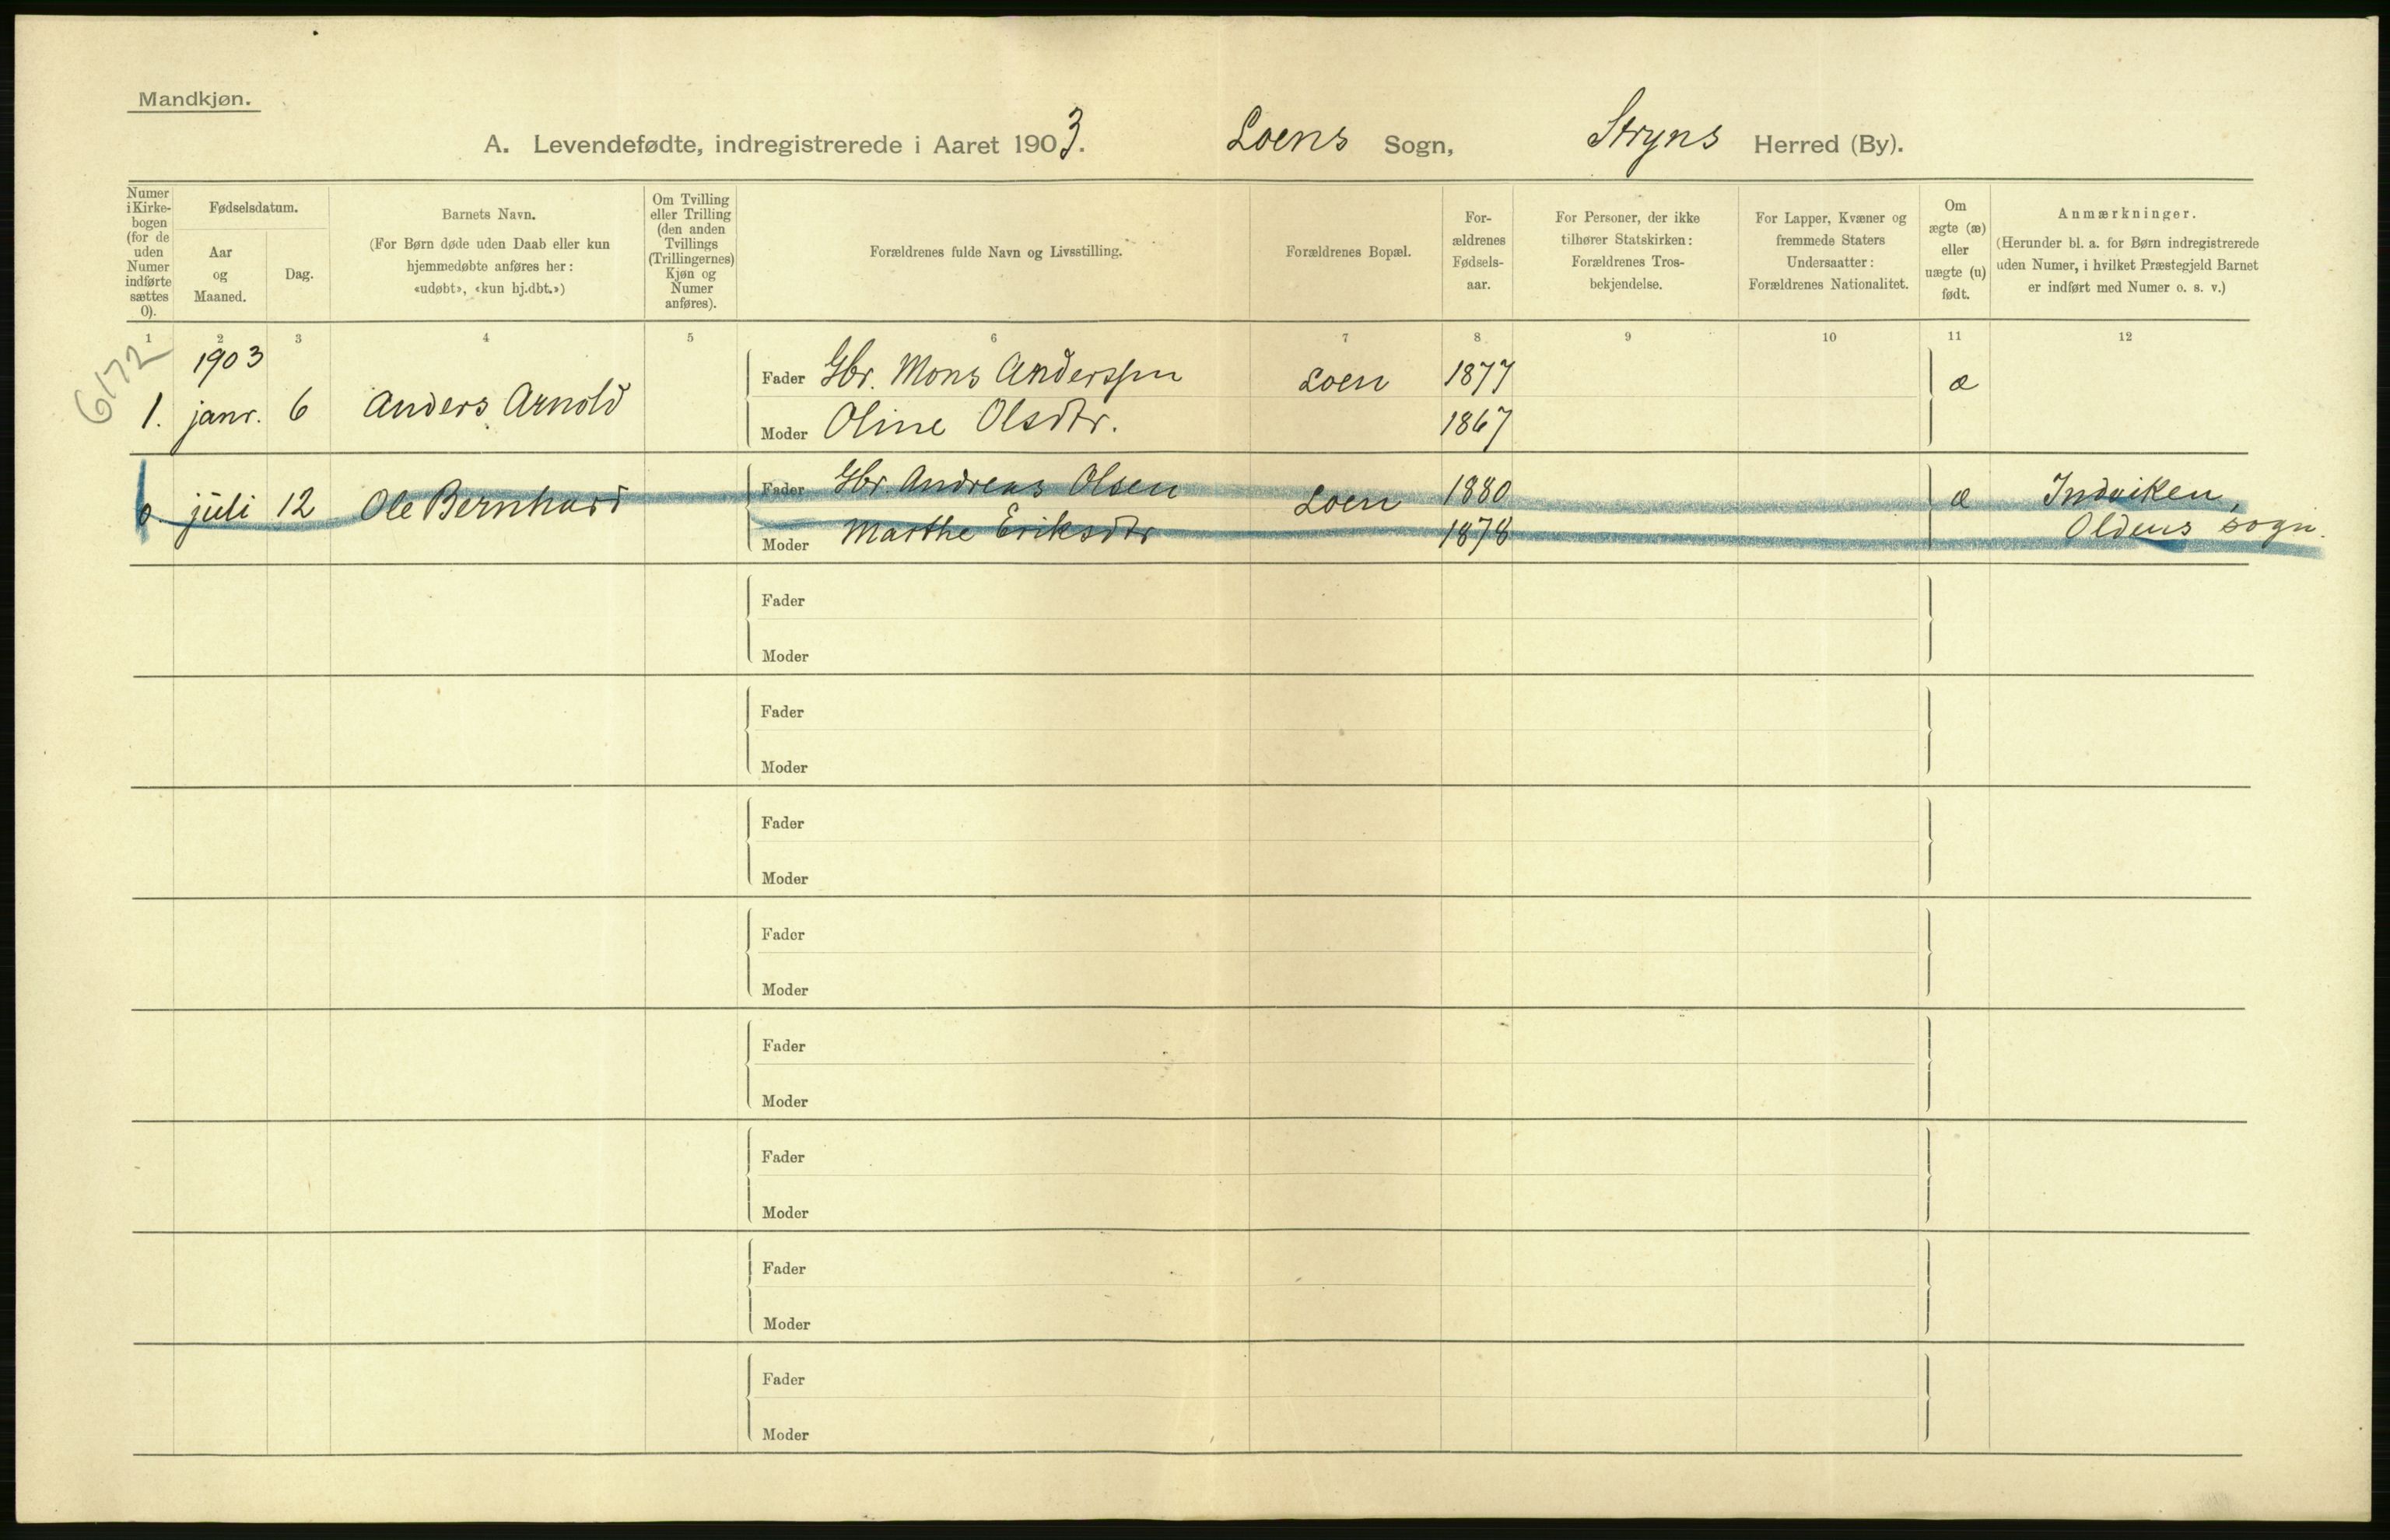 Mandkjøn.
A. Levendefødte, indregistrerede i Aaret 1903. Loens Sogn, Stryns Herred (By).
Numer
i Kirke-
bogen
(for de
uden
Numer
indførte
sættes
0).
Fødselsdatum.
Aar
og
Maaned.
Dag.
Barnets Navn.
(For Børn døde uden Daab eller kun
hjemmedøbte anføres her:
«udøbt», «kun hj.dbt.»)
Om Tvilling
eller Trilling
(den anden
Tvillings
(Trillingernes)
Kjøn og
Numer
anføres).
Forældrenes fulde Navn og Livsstilling.
Forældrenes Bopæl.
For-
ældrenes
Fødsels-
aar.
For Personer, der ikke
tilhører Statskirken:
Forældrenes Tros-
bekjendelse.
For Lapper, Kvæner og
fremmede Staters
Undersaatter:
Forældrenes Nationalitet.
Om
ægte (æ)
eller
uægte (u)
født.
Anmærkninger.
(Herunder bl. a. for Børn indregistrerede
uden Numer, i hvilket Præstegjeld Barnet
er indført med Numer o. s. v.)
1 2 3 4 5 6 7 8 9 10 11 12
6172
1903
Fader Gbr. Mons Anderssen Loen 1877 æ
1. janr. 6 Anders Arnold
Moder Oline Olsdtr. 1867
Fader Gbr. Andreas Olsen Loen 1880 æ Indviken,
0. juli 12 Ole Bernhard
Moder Marthe Eriksdtr 1878 Oldens sogn.
Fader
Moder
Fader
Moder
Fader
Moder
Fader
Moder
Fader
Moder
Fader
Moder
Fader
Moder
Fader
Moder